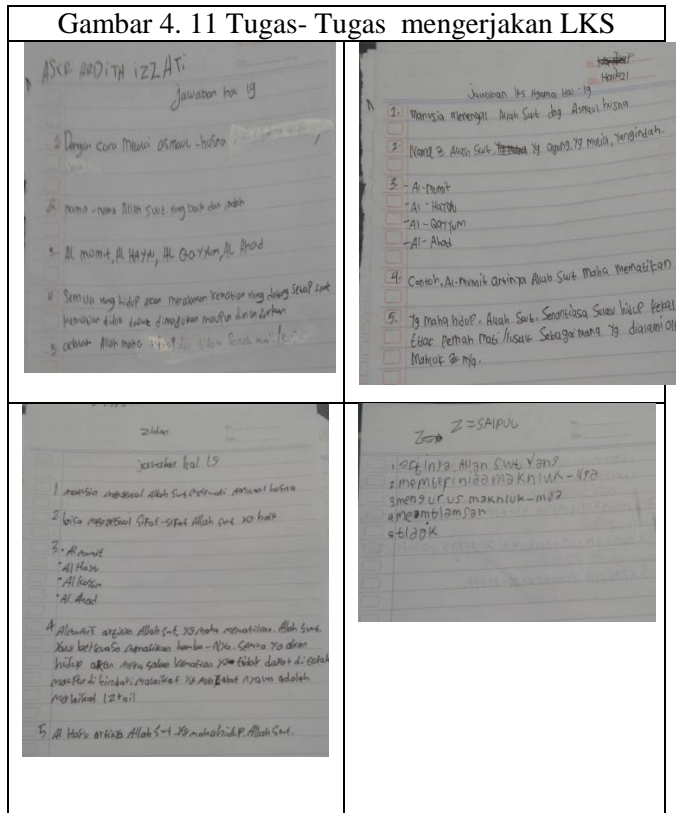 Gambar 4. 11 Tugas- Tugas mengerjakan LKS
Jawaban hal 19
1 Dengan cara melalui asmaul -husna
2 nama -nama Allah swt. yang baik dan indah
3. Al mumit, AL HAYYU, AL QAYYUM, AL Ahad
4 Semua yang hidup akan merasakan kematian yang datang setiap saat
kematian tidak dapat dimajukan maupun
5 adalah Allah maha
Haikal
Jawaban lks Agama Hal-19
1. Manusia mengenal Allah Swt dng Asmaul husna
2. Nama2 Allah Swt. yg agung, yg mulia, yang indah.
3. - Al-mumit
- Al-Hayyu
- Al-Qayyum
- Al-Ahad
4. Contoh, Al-Mumit artinya Allah Swt Maha mematikan
5. Yg maha hidup. Allah Swt. Senantiasa hidup kekal
pernah mati/rusak Sebagaimana yg dialami
Mahluk 2 nya.
Zidan
jawaban hal 19
1 manusia mengenal Allah Swt asmaul husna
2 bisa mengetahui Sifat-sifat Allah Swt. yg baik
3. Almumit
Al Hayu
Al Ahad
4 Almumit artinya Allah Swt, yg maha mematikan. Allah Swt.
yang berkuasa mematikan hamba-Nya. semua yg
hidup akan kematian tidak dapat
maupun di hindari. malaikat yg nyawa adalah
malaikat izrail
5 Al Hayu artinya Allah Swt yg maha hidup. Allah Swt.
Z=SAIPUL
1 artinya Allah Swt yang
2 makhluk-nya
3 mengurus makhluk-nya